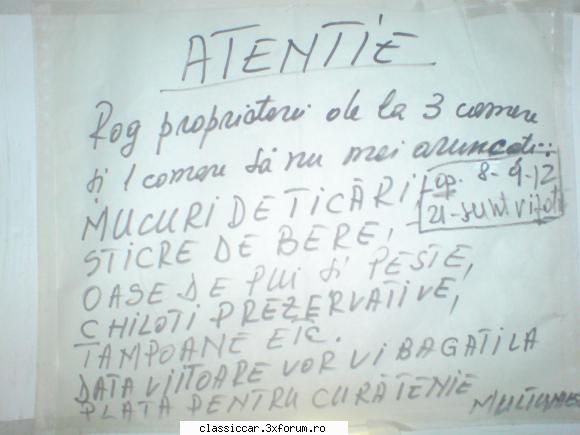 ATENTIE
Rog proprietarii de la 3 camere
și 1 camere să nu mai aruncati..
MUCURI DE TICĂRI,
ap. 8-9-12
21-sunt vizati
STICRE DE BERE,
OASE DE PUI și PESTE,
CHILOTI PREZERVATIVE,
TAMPOANE ETC.
DATA VIITOARE VOR VI BAGATI LA
PLATA PENTRU CURĂTENIE
classiccar.3xforum.ro